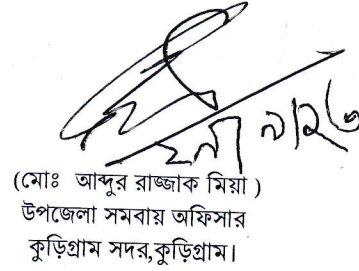 (মোঃ আব্দুর রাজ্জাক মিয়া )
উপজেলা সমবায় অফিসার
কুড়িগ্রাম সদর,কুড়িগ্রাম।